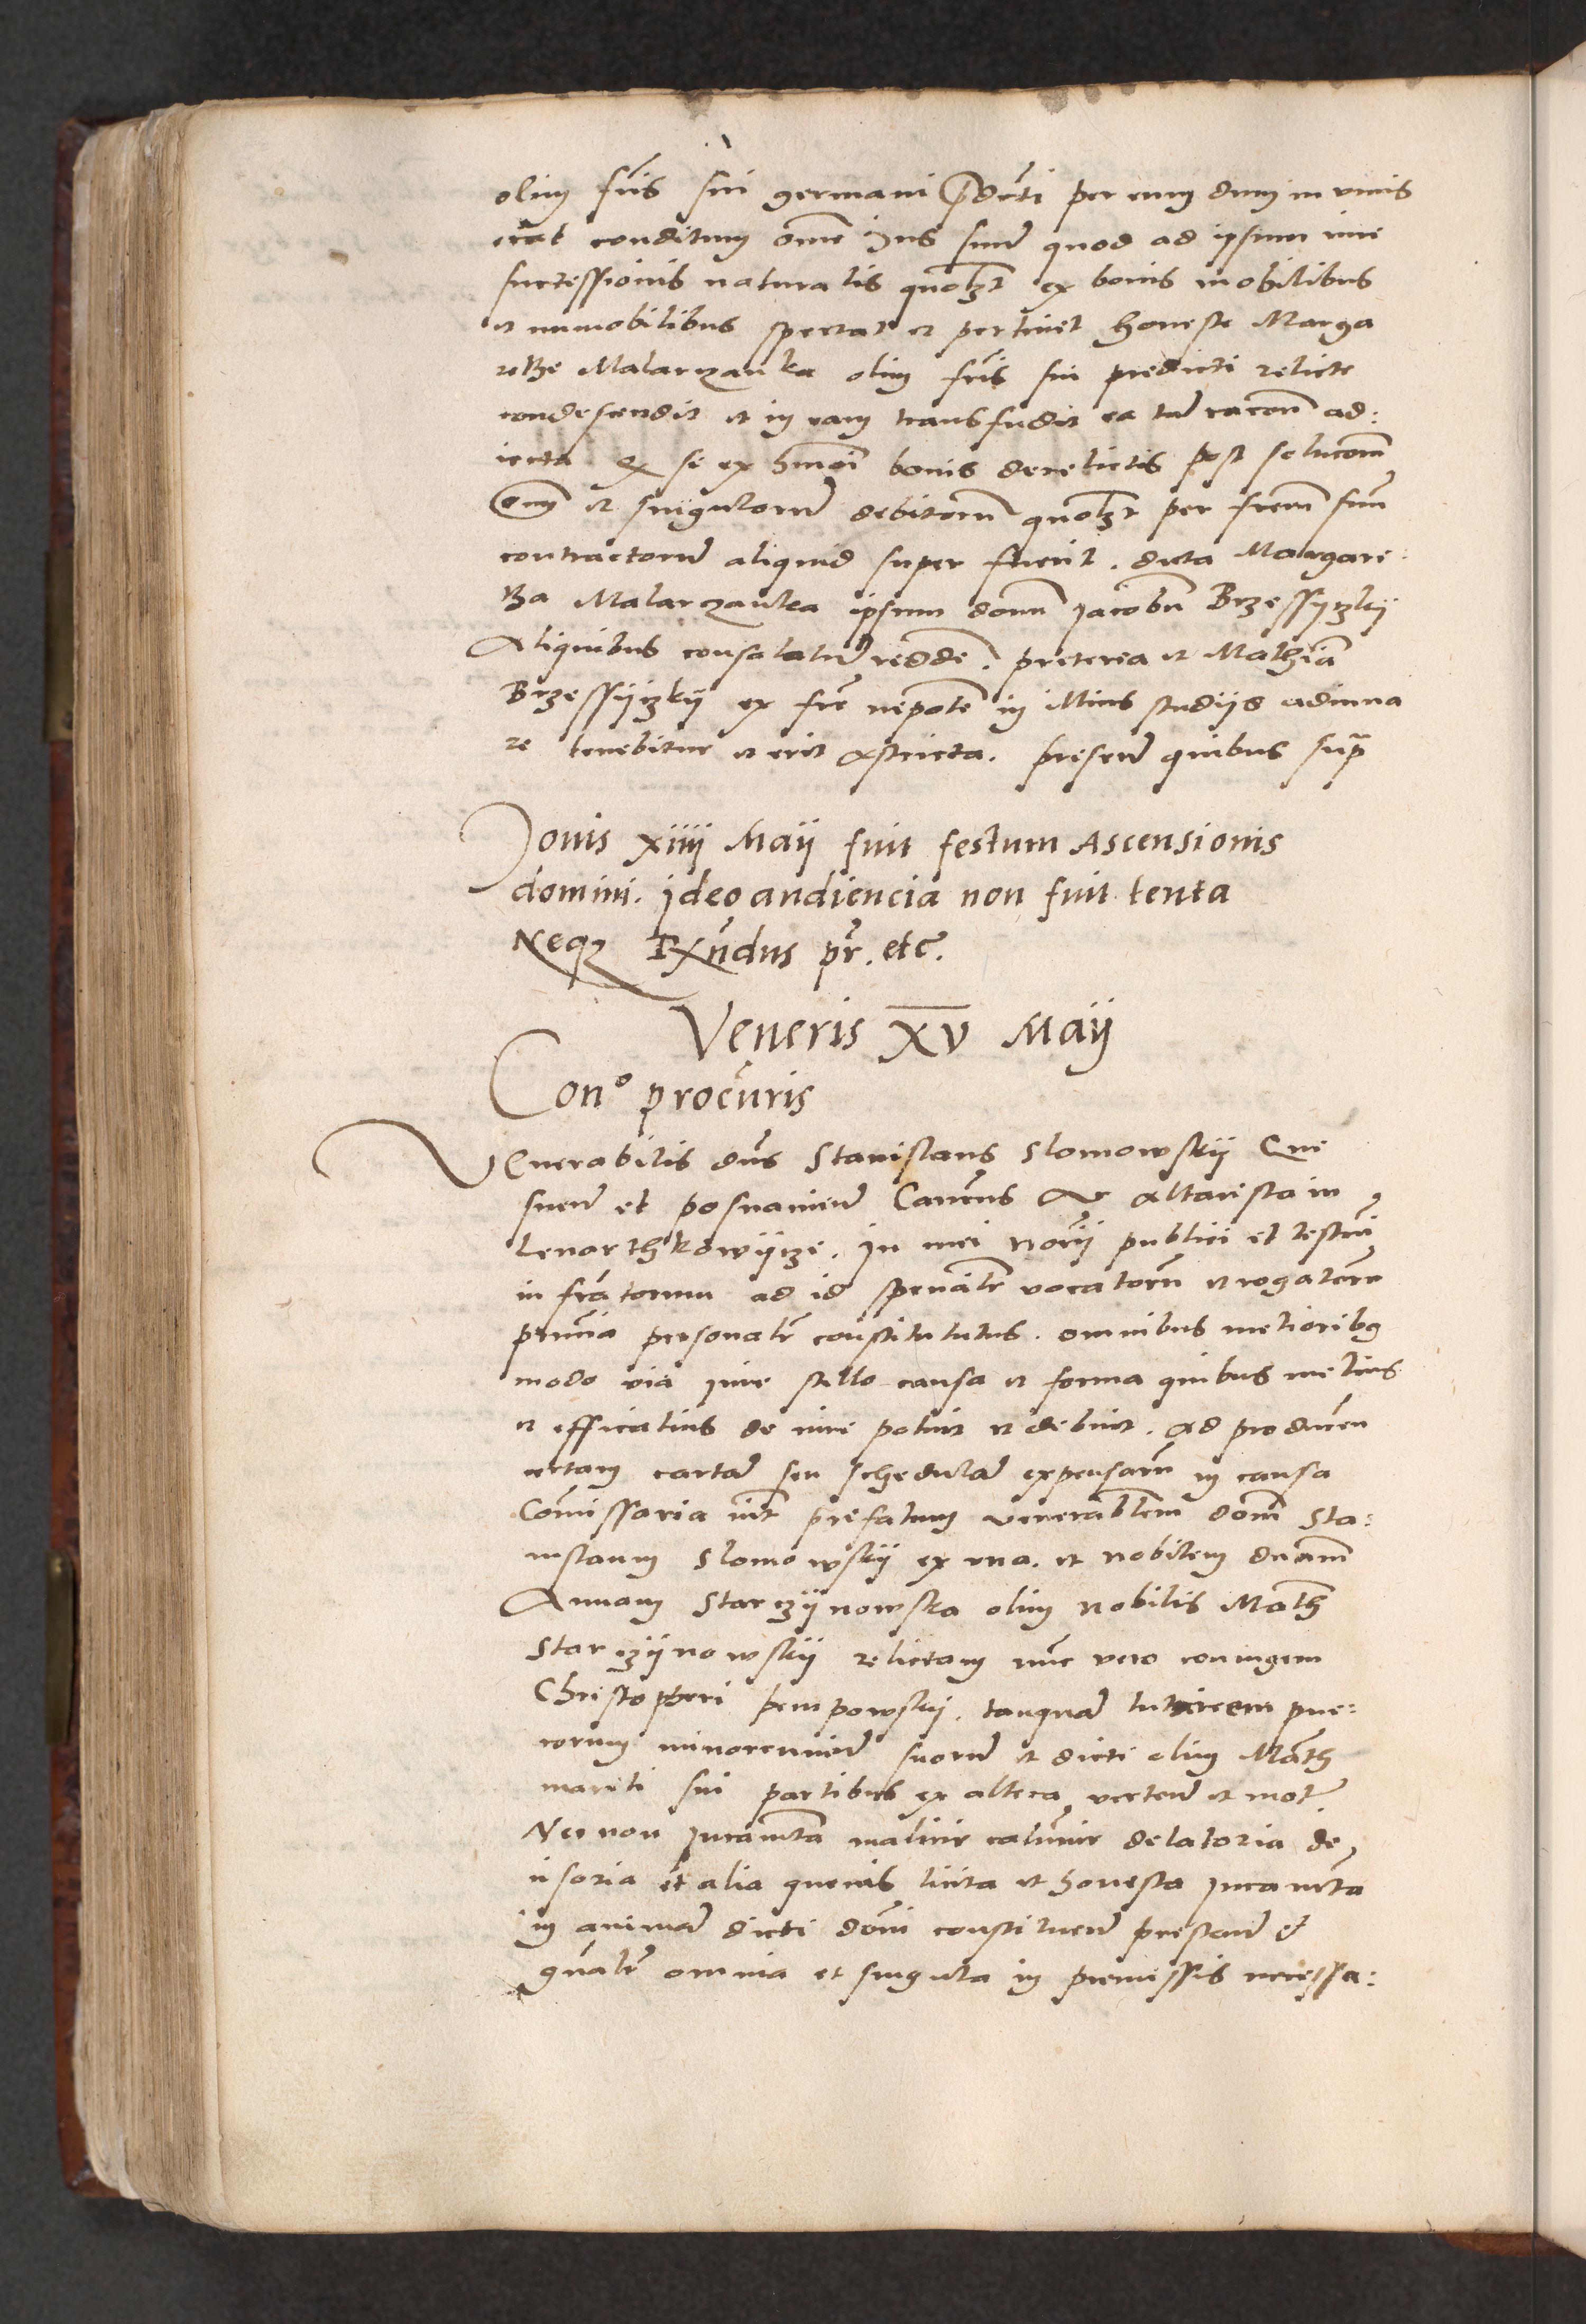 olim fris sui germani predicti per eum dum in vivis
erat conditum omne ius suum quod ad ipsum iure
successionis naturalis quolzt ex bonis mobilibus
et immobilibus spectat et pertinet honeste Marga
rethe Malarzanka olim fris sui predicti relicte
condescendit et in eam transfudit ea tum racone ad:
iecta Q si ex hmoi bonis derelictis post solucom
omnium et singulorum debitorum quolzt per frem suum
contractorum aliquid super fuerit. dicta Margare:
tha Malarzanka ipsum domi Jacobum Brzessyczky
Aliquibus consolatur redde. preterea et Mathiam
Brzessyiczky ex fre nepotem in illius studijs adiuva
re tenebitur et erit astricta. presen quibus supra
Jovis xiiij Maij fuit festum Ascensionis
domini. ideo audiencia non fuit tenta
Neqz Rxndus pr. etc.
Veneris xv Maij
Cono procuris
Venerabilis dns Stanislaus Slomowsky Gne
snen et posnanien Canonicus Ac Altarista in
Lenarthkowycze. In mei norij publici et testium
infratorum ad id specialr vocatorum et rogatorum
presencia personalr constitutus. omnibus melioribus
modo via iure stillo causa et forma quibus melius
et efficatius de iure potuit et debuit. Ad producen
certam cartam seu schedulam expensarum in causa
Commissaria int prefatum venerabilem dom Sta:
nislaum Slomowsky ex una. et nobilem dnam
Annam Starczynowska olim nobilis Math
Starczynowsky relictam nunc vero coniugem
Christopheri pempowsky. tanquam tutricem pue:
rorum minorennium suorum et dicti olim Math
mariti sui partibus ex altera verten et mot
Nec non Juramenta malicie calumnie delatoria de
cisoria et alia quevis licita et honesta Juramenta
in animam dicti domi constituen prestan et
gnalr omnia et singula in premissis necessa: